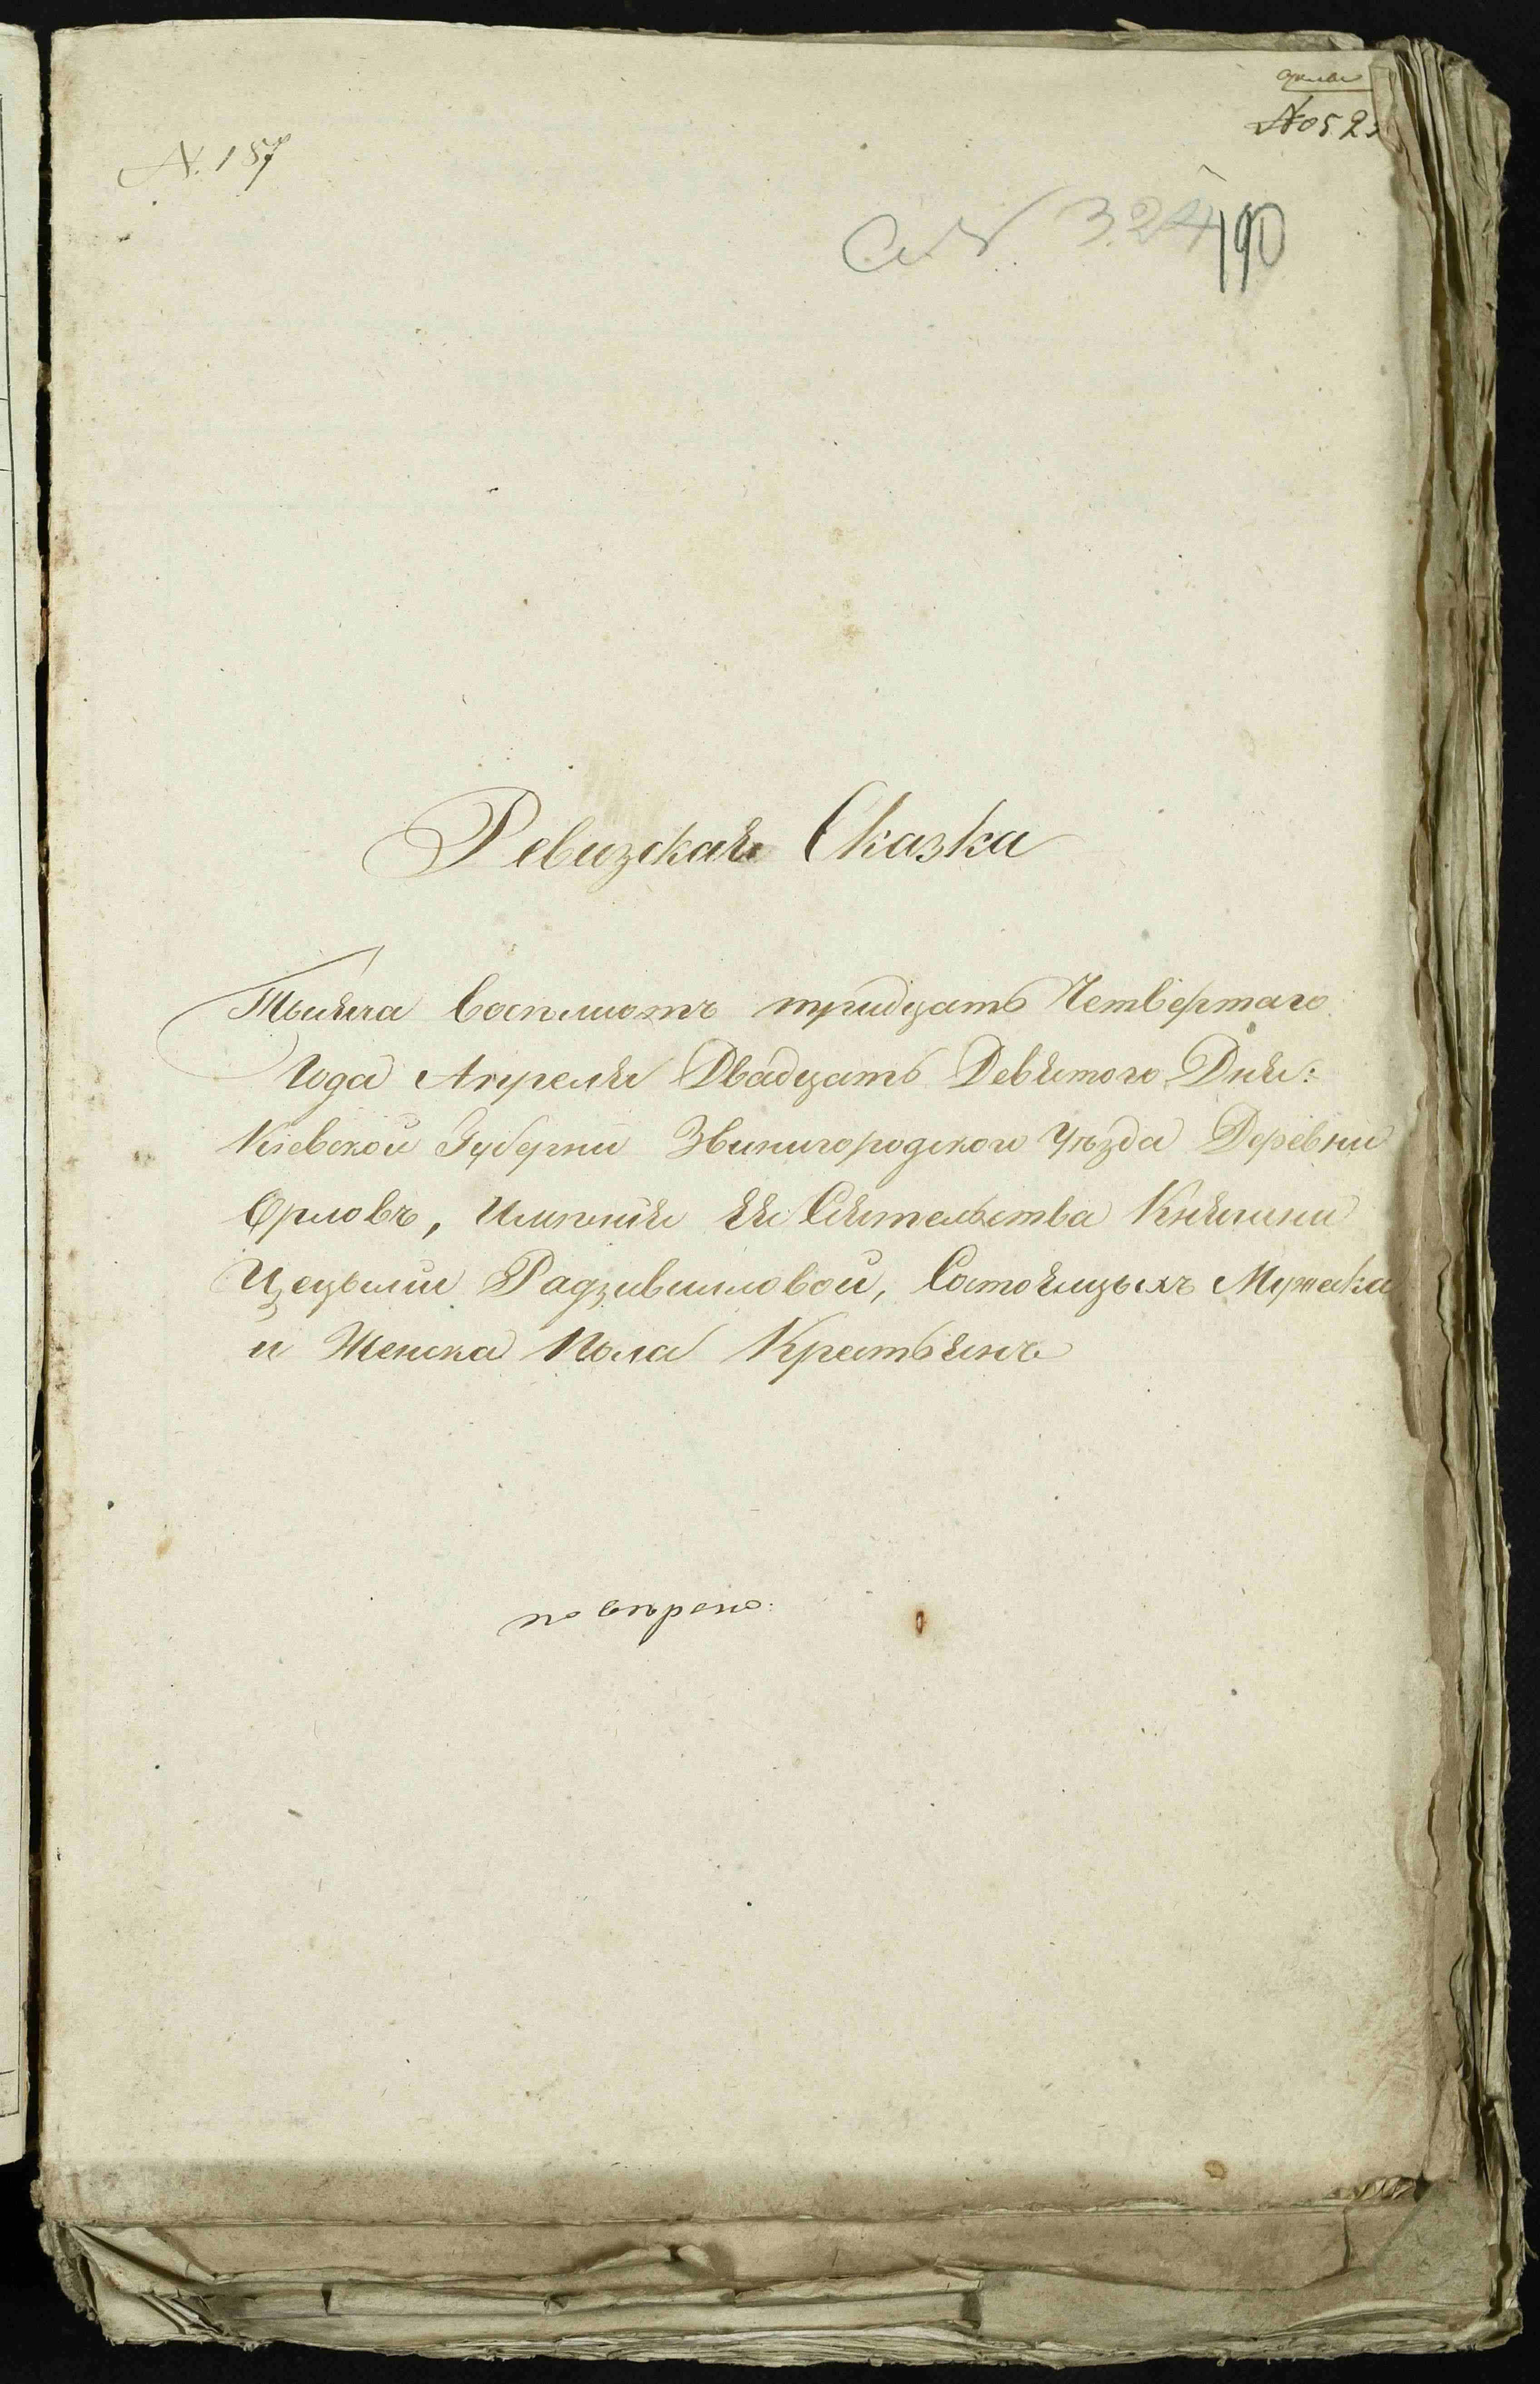 N. 187
№ 52
324
190
Ревизская Сказка
Тысяча восемьсотъ тридцать Четвертаго
Года Апреля Двадцать Девятого Дня:
Кіевской Губерніи Звинигородского Уѣзда Деревни
Орловъ, Имѣнія Ея Сиятельства Княгини
Цецылии Радзивилловой, Состоящыхъ Мужеска
и Женска Пола Крестьянъ
поверено: